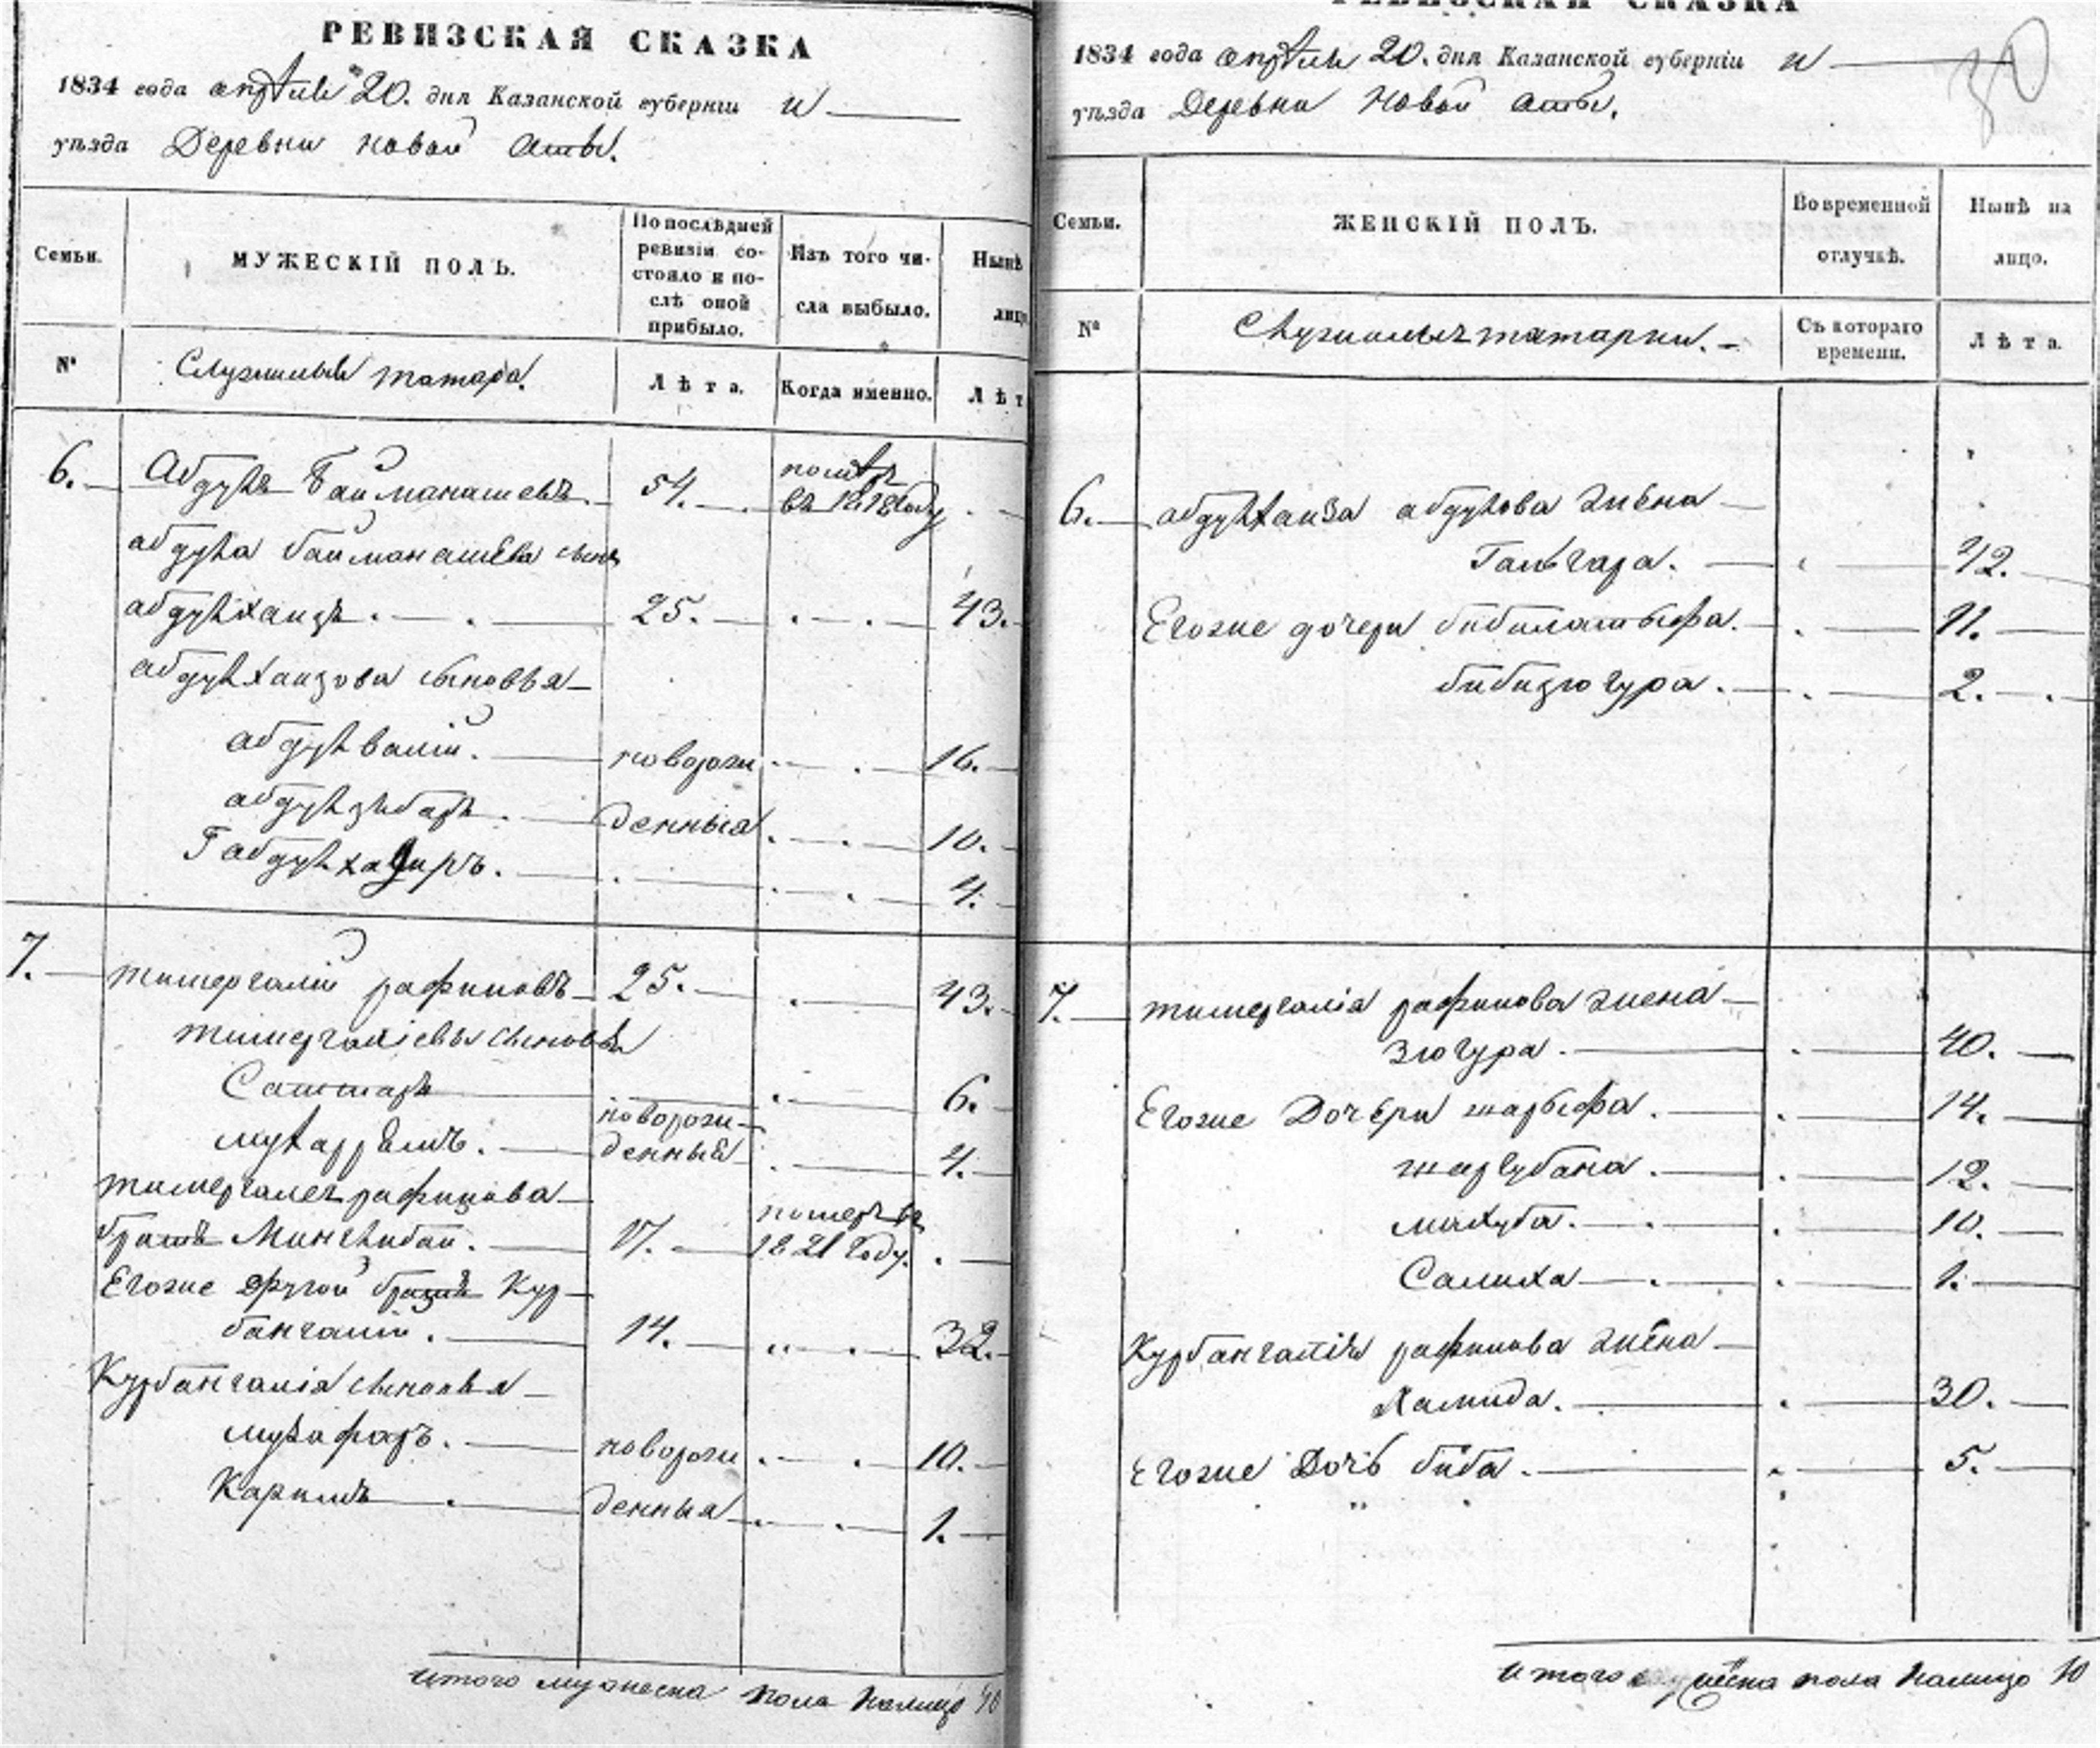 РЕВИЗСКАЯ СКАЗКА
1834 года апреля 20. дня Казанской губерніи и
уѣзда Деревни Новой Аты.
Семьи.
МУЖЕСКІЙ ПОЛЪ.
По послѣдней ревизіи состояло и послѣ оной прибыло.
Изъ того числа выбыло.
Нынѣ
лицо
№
Служилыя татара.
Лѣта.
Когда именно.
Лѣт
6. Абдулъ Байманашевъ. 54. помѣр въ 1818 году
абдула байманашева сынъ
абдулхаизъ. 25. 43.
абдулхаизова сыновья
абдулвалій. новорож 16.
абдулзебаръ. денныя 10.
Габдулхадиръ. 4.
7. тимергалій рафиковъ 25. 43.
тимергаліевы сыновья
Саттаръ 6.
мухаррямъ. новорожденныя 4.
тимергалея рафикова
братъ Мингlибай. 17. помер въ 1821 году.
Егоже другой братъ Кур-
бангалій. 14. 32.
Курбангалія сыновья
музафаръ. новорож 10.
Каримъ денныя 1.
Итого мужеска пола налицо 10
РЕВИЗСКАЯ СКАЗКА
1834 года апреля 20. дня Казанской губерніи и
уѣзда Деревни Новой Аты.
30
Семьи.
ЖЕНСКІЙ ПОЛЪ.
Во временной отлучкѣ.
Нынѣ на лицо.
№
Служилыя татарки.
Съ котораго времени.
Лѣта.
6. абдулхаиза абдулова жена
Гальгара. 42.
Егоже дочери бибилатыфа. 11.
бибизюгура. 2.
7. тимергалія рафикова жена
Зюгура. 40.
Егоже Дочери шарыфа. 14.
шаргубана. 12.
махуба. 10.
Салиха 1.
Курбангалія рафикова жена
Хамида. 30.
Егоже Дочь биба. 5.
Итого женска пола налицо 10